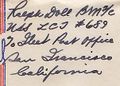 Ralph Doll BM2/c
USS LCI #689
To Fleet Post Office
San Francisco
California